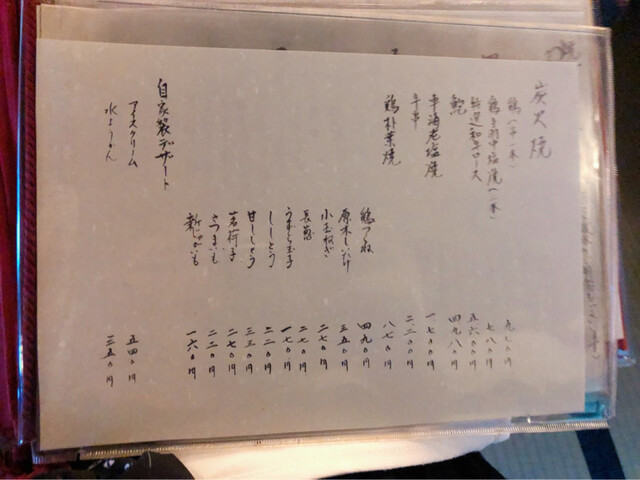 炭火焼
鶏(一本) 九七〇円
鶏手羽中塩焼(一本) 七八〇円
特選和牛ロース 五六〇〇円
鮑 四九八〇円
車海老塩焼 一七〇〇円
牛串 二二〇〇円
鶏朴葉焼 八七〇円
鶏つくね 四九〇円
原木しいたけ 三五〇円
小玉ねぎ 二七〇円
長葱 二七〇円
うずら玉子 一七〇円
ししとう 二二〇円
甘ししとう 三三〇円
茗荷子 二七〇円
さつまいも 二二〇円
新じゃがいも 一六〇円
自家製デザート
アイスクリーム 五四〇円
水ようかん 三五〇円